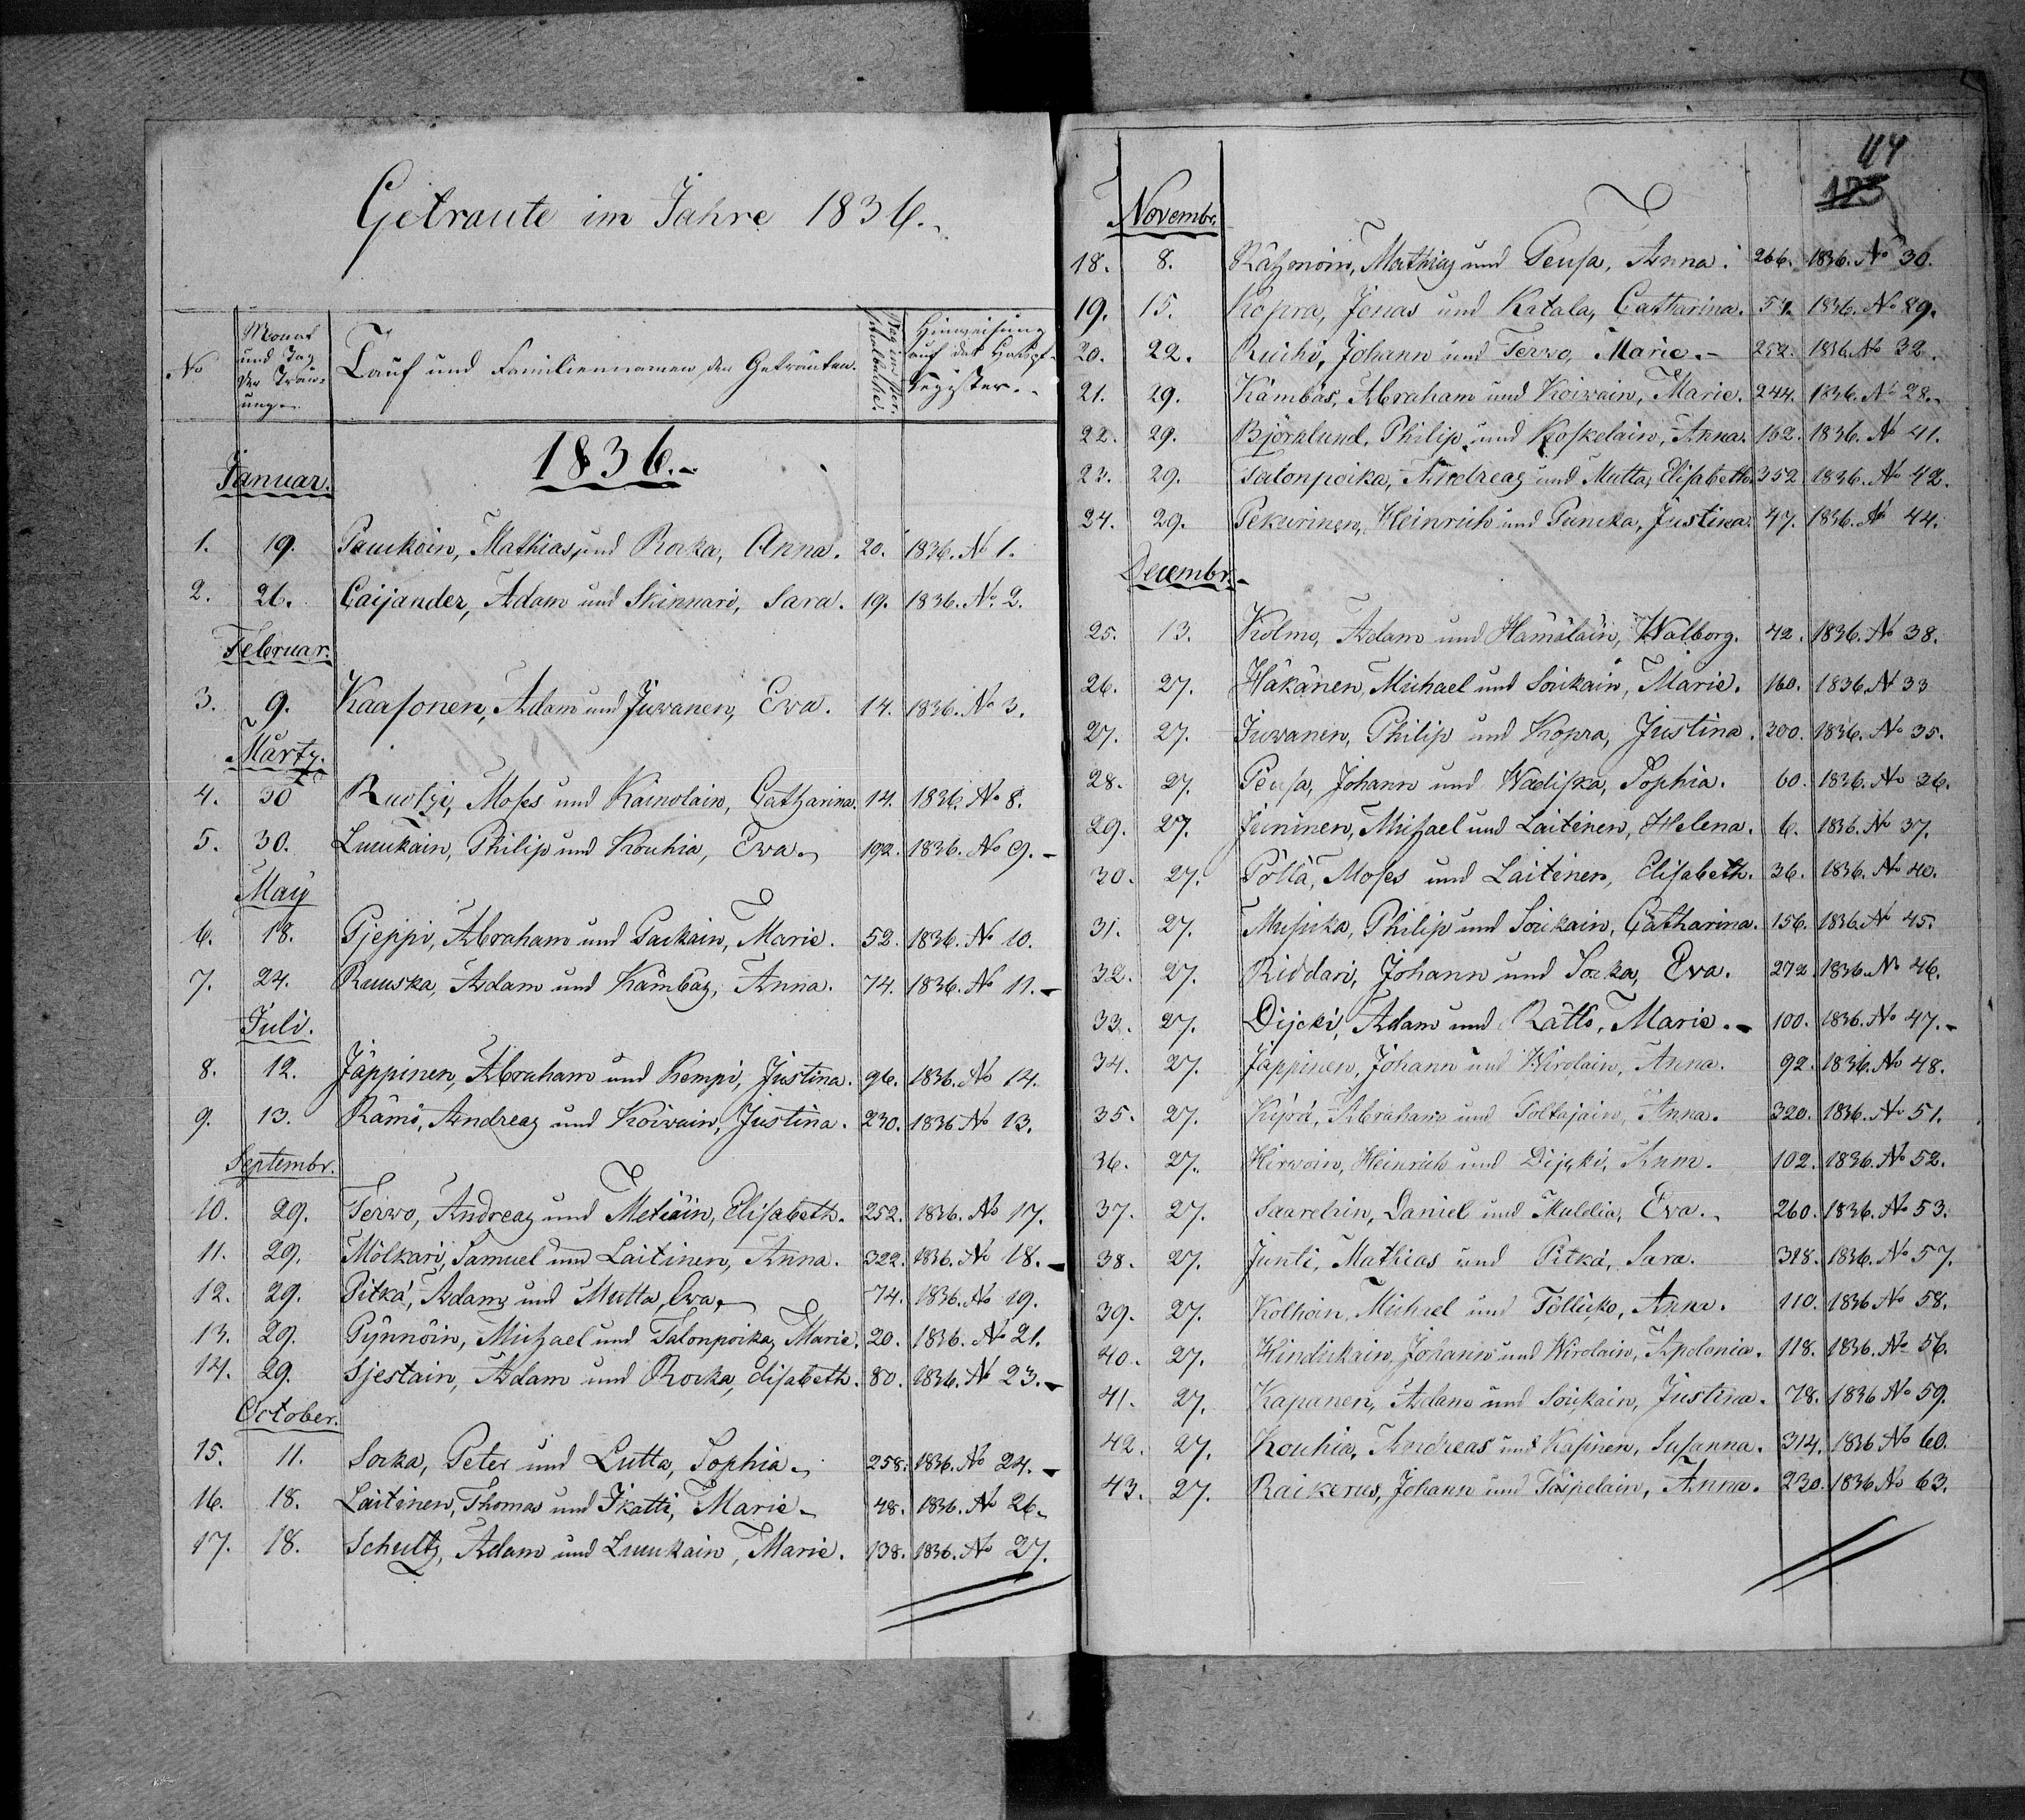 Getraute im Jahre 1836.
No
Monat und Tag der Trauung.
Tauf und Familiennamen der Getrauten.
Hinweisung auf das Haupt-Register.
1836.
Januar.
1. 19. Paukoin, Mathias und Rocka, Anna. 20. 1836. No 1.
2. 26. Caijander, Adam und Skinnari, Sara. 19. 1836. No 2.
Februar.
3. 9. Kaasonen, Adam und Juvanen, Ewa. 14. 1836. No 3.
Martz.
4. 30 Ruotzi, Moses und Kainolain, Catharina. 14. 1836. No 8.
5. 30. Luukain, Philip und Kouhia, Ewa. 192. 1836. No 9.
May
6. 18. Pjeppi, Abraham und Packain, Marie. 52. 1836. No 10.
7. 24. Ruuska, Adam und Kämbäz, Anna. 74. 1836. No 11.
Juli.
8. 12. Jäppinen, Abraham und Kempi, Justina. 96. 1836. No 14.
9. 13. Rämö, Andreas und Koivain, Justina. 230. 1836 No 13.
Septembr.
10. 29. Terwo, Andreas und Metiäin, Elisabeth. 252. 1836. No 17.
11. 29. Mölkari, Samuel und Laitinen, Anna. 322. 1836. No 18.
12. 29. Pitkä, Adam und Mutta, Ewa. 74. 1836. No 19.
13. 29. Pÿnnöin, Michael und Talonpoika, Marie. 20. 1836. No 21.
14. 29. Sjestain, Adam und Rocka, Elisabeth. 80. 1836. No 23.
October.
15. 11. Socka, Peter und Lutta, Sophia. 258. 1836. No 24.
16. 18. Laitinen, Thomas und Ikatti, Marie. 48. 1836. No 26.
17. 18. Schultz, Adam und Luukain, Marie. 138. 1836. No 27.
114
123
Novembr.
18. 8. Räzmöin, Mathias und Peusa, Anna. 266. 1836. No 30.
19. 15. Kopra, Jonas und Katala, Catharina. 54. 1836. No 29.
20. 22. Ruihi, Johann und Terwo, Marie. 252. 1836. No 32.
21. 29. Kämbäs, Abraham und Koivain, Marie. 244. 1836. No 28.
22. 29. Björklund, Philip und Koskelain, Anna. 152. 1836. No 41.
23. 29. Talonpoika, Andreas und Mutta, Elisabeth. 352 1836. No 42.
24. 29. Pekurinen, Heinrich und Puncka, Justina. 47. 1836. No 44.
Decembr.
25. 13. Kolmo, Adam und Hämäläin, Walborg. 42. 1836. No 38.
26. 27. Häkänen, Michael und Soukain, Marie. 160. 1836. No 33
27. 27. Juvanen, Philip und Kopra, Justina. 300. 1836. No 35.
28. 27. Peusa, Johann und Wadiska, Sophia. 60. 1836. No 36.
29. 27. Juninen, Michael und Laitinen, Helena. 6. 1836. No 37.
30. 27. Pöllä, Moses und Laitinen, Elisabeth. 36. 1836. No 40.
31. 27. Musicka, Philip und Soukain, Catharina. 156. 1836. No 45.
32. 27. Riddari, Johann und Socka, Eva. 272 1836. No 46.
33. 27. Dijcki, Adam und Rättö, Marie. 100. 1836. No 47.
34. 27. Jäppinen, Johann und Wirolain, Anna. 92. 1836. No 48.
35. 27. Kijrä, Abraham und Poltajain, Anna. 320. 1836. No 51.
36. 27. Hirwoin, Heinrich und Dijcki, Anna. 102. 1836. No 52.
37. 27. Saarelain, Daniel und Muldia, Eva. 260. 1836. No 53.
38. 27. Junti, Mathias und Pitkä, Sara. 318. 1836. No 57.
39. 27. Kolhoin, Michael und Töllicko, Anna. 110. 1836 No 58.
40. 27. Hindikain, Johann und Wirolain, Apolonia. 118. 1836. No 56.
41. 27. Kapanen, Adam und Soukain, Justina. 78. 1836 No 59.
42. 27. Kouhia, Andreas und Kasinen, Susanna. 314. 1836 No 60.
43. 27. Raikerus, Johann und Taipelain, Anna. 230. 1836 No 63.